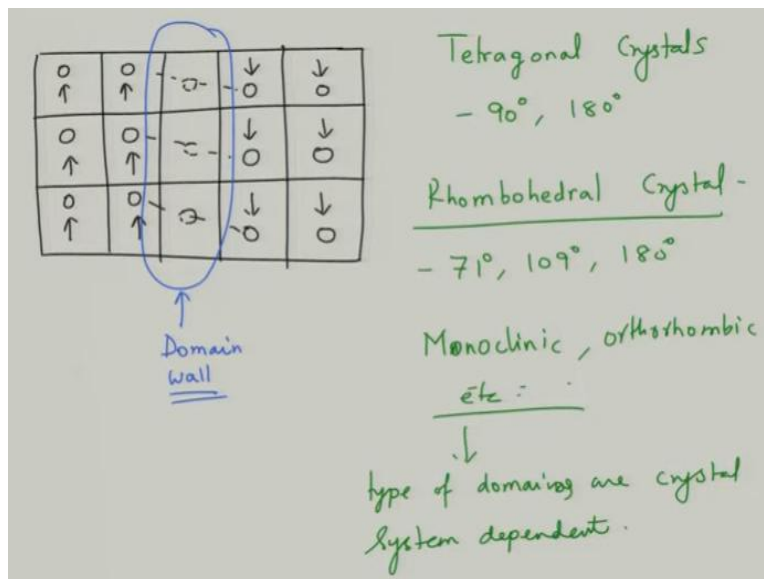 Domain
wall
Tetragonal Crystals
- 90°, 180°
Rhombohedral Crystal -
- 71°, 109°, 180°
Monoclinic, orthorhombic
etc
type of domains are crystal
system dependent.